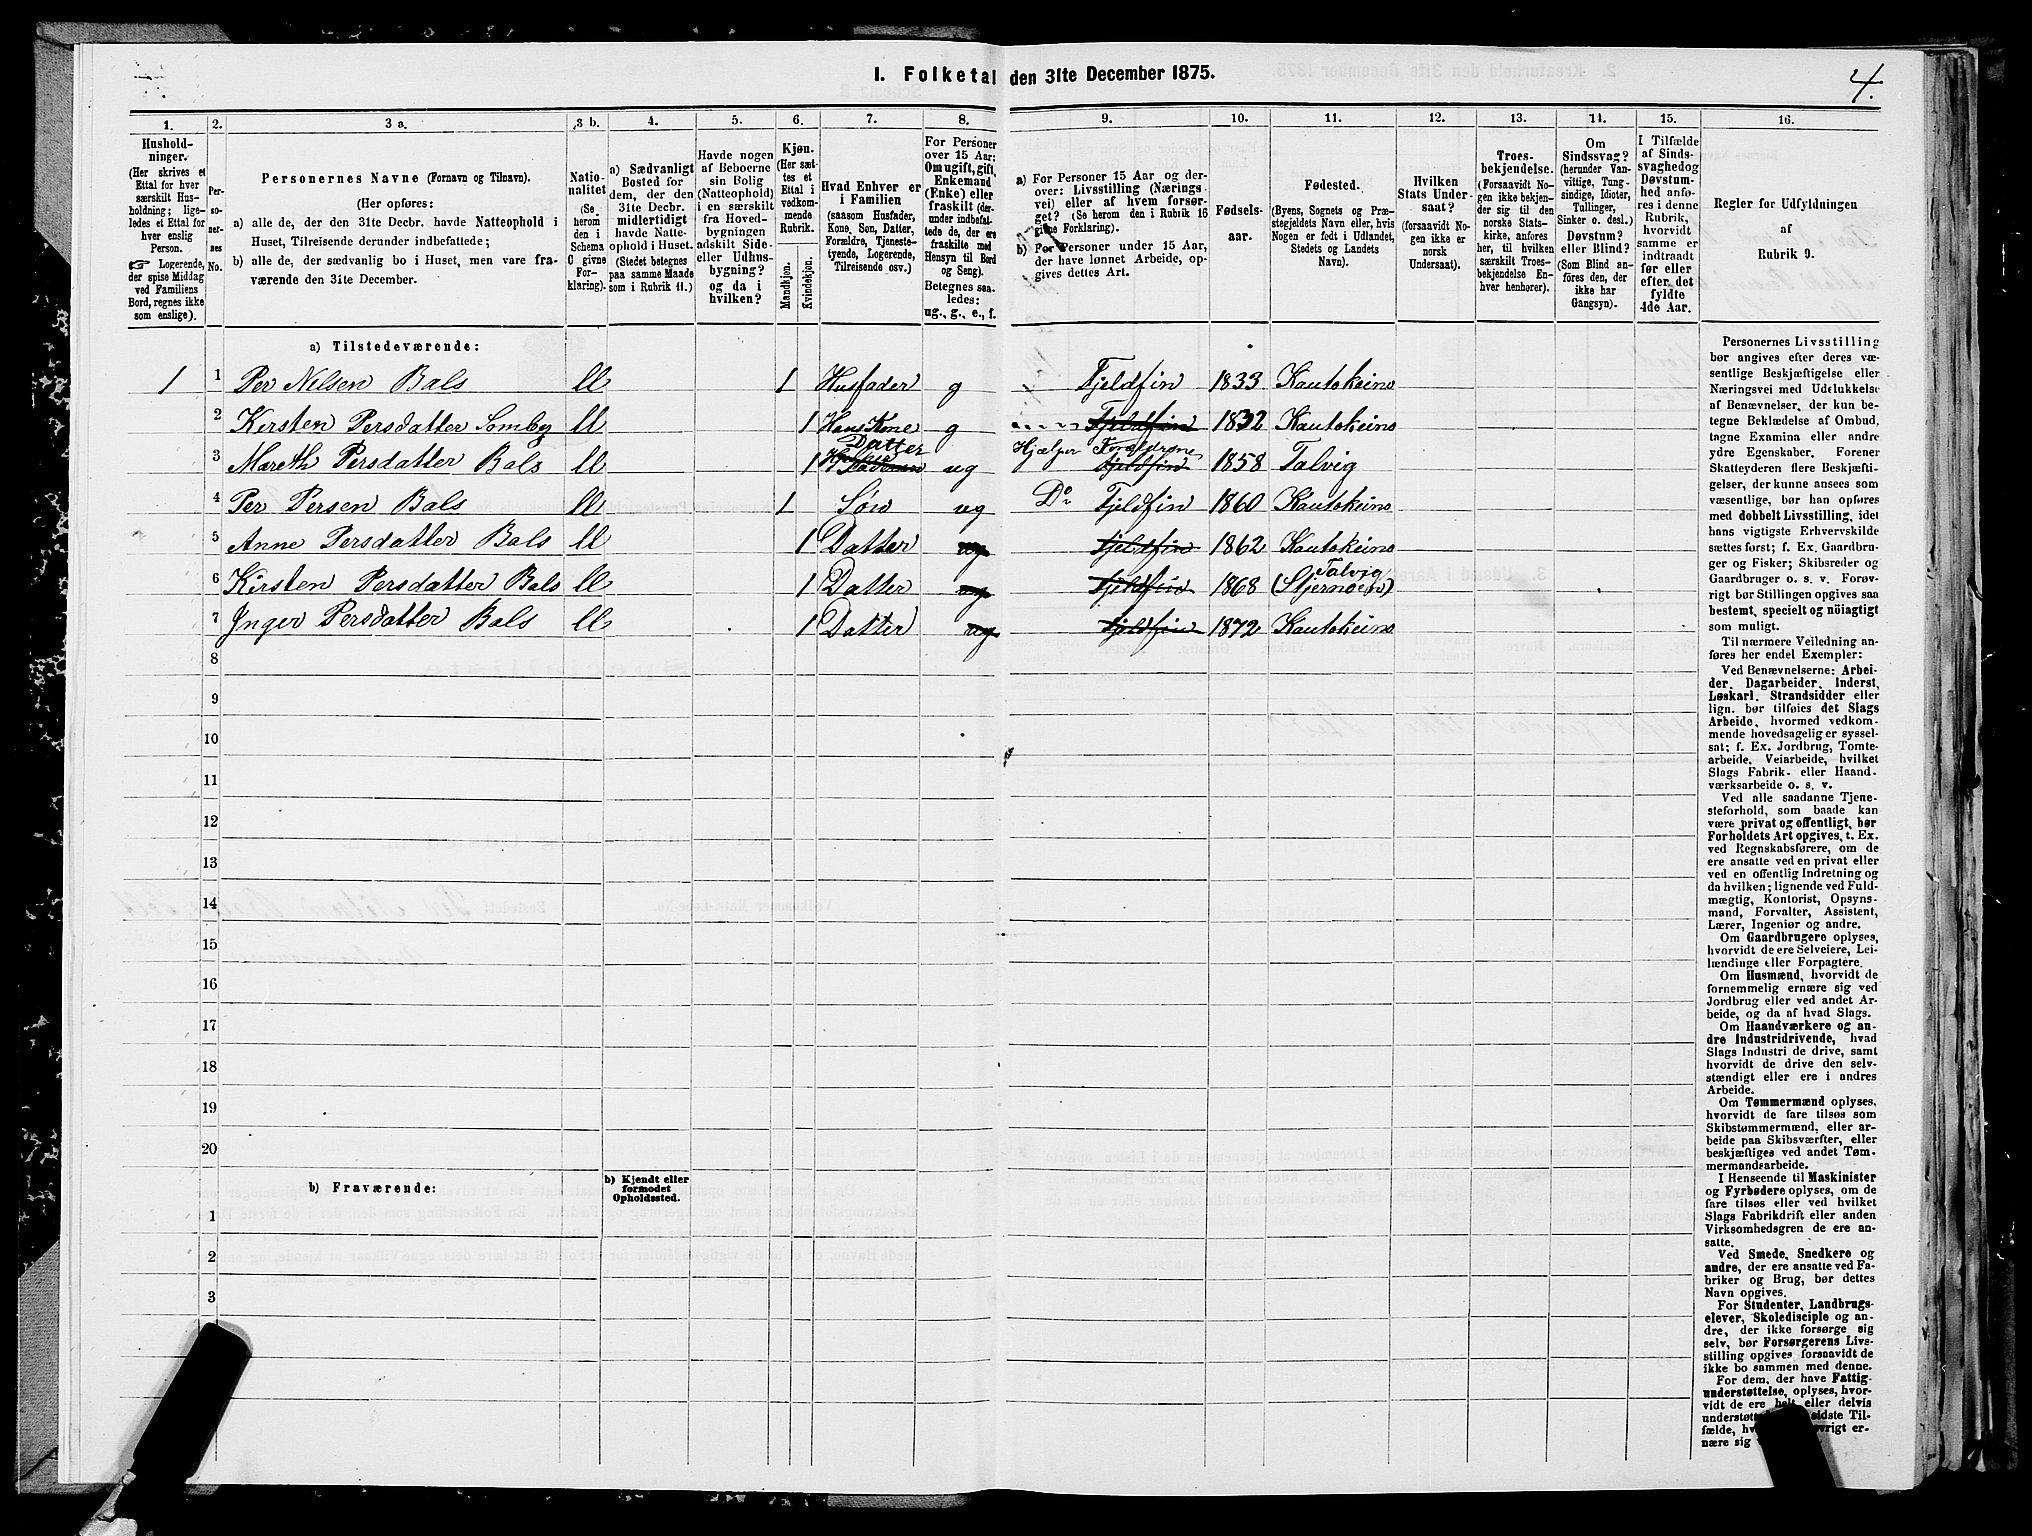 I. Folketal den 31te December 1875.
4.
1.
Husholdninger.
(Her skrives et
Ettal for hver
særskilt Husholdning; ligeledes et Ettal for
hver enslig
Person.
☞ Logerende,
der spise Middag
ved Familiens
Bord, regnes ikke
som enslige).
2.
Personernes
No.
3 a.
Personernes Navne (Fornavn og Tilnavn).
(Her opføres:
a) alle de, der den 31te Decbr. havde Natteophold i
Huset, Tilreisende derunder indbefattede;
b) alle de, der sædvanlig bo i Huset, men vare fraværende den 31te December.
3 b.
Nationalitet
(Se
herom
den i
Schema
C givne
Forklaring).
4.
a) Sædvanligt
Bosted for
dem, der den
31te Decbr.
midlertidigt
havde Natteophold i Huset.
(Stedet betegnes
paa samme Maade
som i Rubrik 11.)
5.
Havde nogen
af Beboerne
sin Bolig
(Natteophold)
i en særskilt
fra Hovedbygningen
adskilt Side-
eller Udhusbygning?
og da i
hvilken?
6.
Kjøn.
(Her sættes et
Ettal i
vedkommende
Rubrik.
Mandkjøn.
Kvindekjøn.
7.
Hvad Enhver er
i Familien
(saasom Husfader,
Kone, Søn, Datter,
Forældre, Tjenestetyende, Logerende,
Tilreisende osv.)
8.
For Personer
over 15 Aar:
Om ugift, gift,
Enkemand
(Enke) eller
fraskilt (derunder indbefattede de, der ere
fraskilte med
Hensyn til Bord
og Seng).
Betegnes saaledes:
ug., g., e., f.
9.
a) For Personer 15 Aar og derover: Livsstilling (Næringsvei) eller af hvem forsørget? (Se herom den i Rubrik 16
givne Forklaring).
b) For Personer under 15 Aar,
der have lønnet Arbeide, opgives dettes Art.
10.
Fødselsaar.
11.
Fødested.
(Byens, Sognets og Præstegjeldets Navn eller, hvis
Nogen er født i Udlandet,
Stedets og Landets
Navn).
12.
Hvilken
Stats Undersaat?
(forsaavidt Nogen ikke er
norsk
Undersaat).
13.
Troesbekjendelse.
(Forsaavidt Nogen ikke bekjender sig til den
norske Statskirke, anføres
her, til hvilken
særskilt Troesbekjendelse Enhver henhører).
14.
Om
Sindssvag?
(herunder Vanvittige, Tungsindige, Idioter,
Tullinger,
Sinker o. desl.)
Døvstum?
eller Blind?
(Som Blind anføres den, der
ikke har
Gangsyn).
15.
I Tilfælde
af Sindssvaghed og
Døvstumhed anføres i denne
Rubrik,
hvorvidt
samme er
indtraadt
før eller
efter det
fyldte
4de Aar.
16.
Regler for Udfyldningen
af
Rubrik 9.
a) Tilstedeværende:
1 1 Per Nilsen Bals ll 1 Husfader g Fjeldfin 1833 Kautokeino
2 Kirsten Persdatter Somby ll 1 Hans Kone g Fjeldfin 1832 Kautokeino
3 Mareth Persdatter Bals ll 1 Datter ug Hjælper Forældrene Fjeldfin 1858 Talvig
4 Per Persen Bals ll 1 Søn ug Do Fjeldfin 1860 Kautokeino
5 Anne Persdatter Bals ll 1 Datter ug Fjeldfin 1862 Kautokeino
6 Kirsten Persdatter Bals ll 1 Datter ug Fjeldfin 1868 Talvig (Stjernøen)
7 Inger Persdatter Bals ll 1 Datter ug Fjeldfin 1872 Kautokeino
8
9
10
11
12
13
14
15
16
17
18
19
20
b) Fraværende:
b) Kjendt eller
formodet
Opholdssted.
1
2
3
Personernes Livsstilling
bør angives efter deres væsentlige Beskjæftigelse eller
Næringsvei med Udelukkelse
af Benævnelser, der kun betegne Beklædelse af Ombud,
tagne Examina eller andre
ydre Egenskaber. Forener
Skatteyderen flere Beskjæftigelser, der kunne ansees som
væsentlige, bør han opføres
med dobbelt Livsstilling, idet
hans vigtigste Erhvervskilde
sættes først; f. Ex. Gaardbruger og Fisker; Skibsreder og
Gaardbruger o. s. v. Forøvrigt bør Stillingen opgives saa
bestemt, specielt og nøiagtigt
som muligt.
Til nærmere Veiledning anføres her endel Exempler:
Ved Benævnelserne: Arbeider, Dagarbeider, Inderst,
Løskarl, Strandsidder eller
lign. bør tilføies det Slags
Arbeide, hvormed vedkommende hovedsagelig er sysselsat; f. Ex. Jordbrug, Tomtearbeide, Veiarbeide, hvilket
Slags Fabrik- eller Haandværksarbeide o. s. v.
Ved alle saadanne Tjenesteforhold, som baade kan
være privat og offentligt, bør
Forholdets Art opgives, t. Ex.
ved Regnskabsførere, om de
ere ansatte ved en privat eller
ved en offentlig Indretning og
da hvilken; lignende ved Fuldmægtig, Kontorist, Opsynsmand, Forvalter, Assistent,
Lærer, Ingeniør og andre.
Om Gaardbrugere oplyses,
hvorvidt de ere Selveiere, Leilændinge eller Forpagtere.
Om Husmænd, hvorvidt de
fornemmelig ernære sig ved
Jordbrug eller ved andet Arbeide, og da af hvad Slags.
Om Haandværkere og andre Industridrivende, hvad
Slags Industri de drive, samt
hvorvidt de drive den selvstændigt eller ere i andres
Arbeide.
Om Tømmermænd oplyses,
hvorvidt de fare tilsøs som
Skibstømmermænd, eller arbeide paa Skibsværfter, eller
beskjæftiges ved andet Tømmermandsarbeide.
I Henseende til Maskinister
og Fyrbødere oplyses, om de
fare tilsøs eller ved hvilket
Slags Fabrikdrift eller anden
Virksomhedsgren de ere ansatte.
Ved Smede, Snedkere og
andre, der ere ansatte ved Fabriker og Brug, bør dettes
Navn opgives.
For Studenter, Landbrugselever, Skoledisciple og andre, der ikke forsørge sig
selv, bør Forsørgerens Livsstilling opgives forsaavidt de
ikke bo sammen med denne.
For dem, der have Fattigunderstøttelse, oplyses, hvorvidt de ere helt eller delvis
sidste Tilfælde,
ernære sig